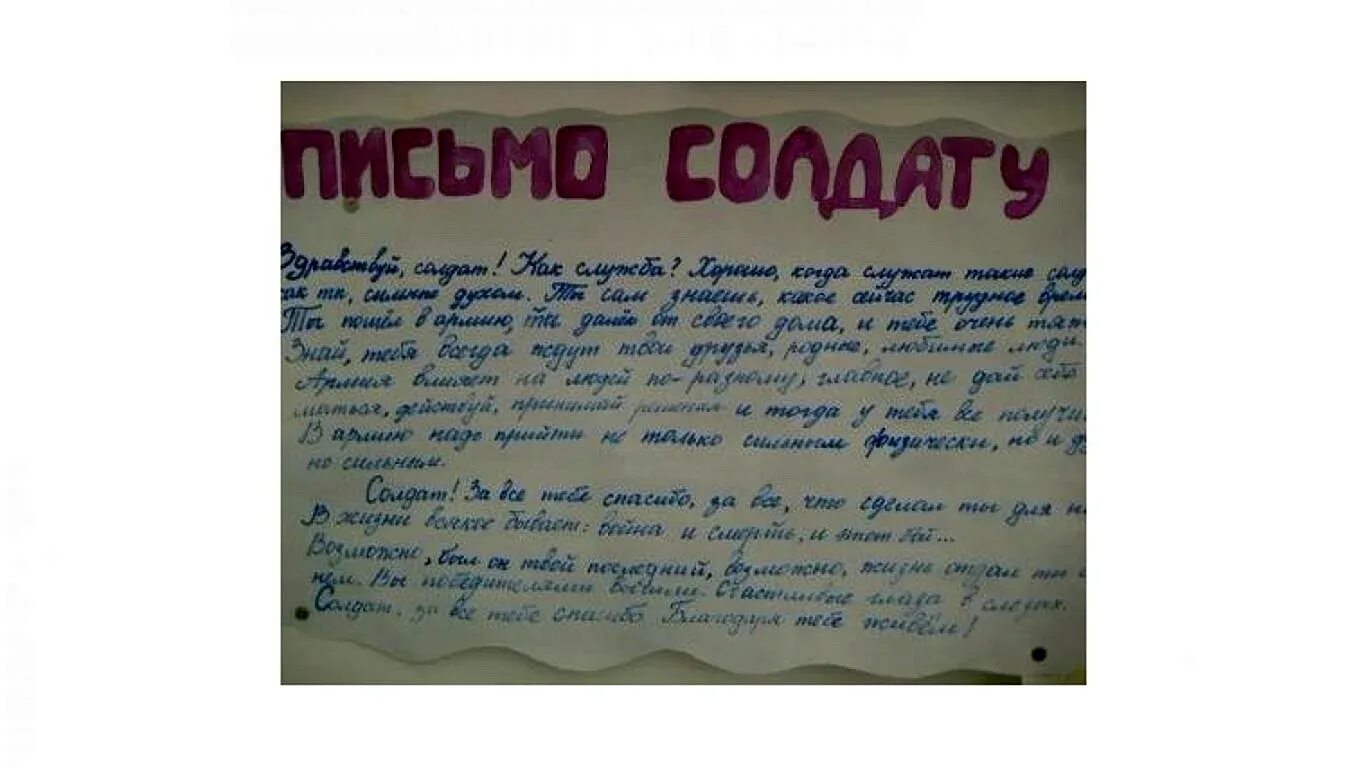 ПИСЬМО СОЛДАТУ
Здравствуй, солдат! Как служба? Хорошо, когда служат такие солд
как ты, сильные духом. Ты сам знаешь, какое сейчас трудное врем
Ты пошёл в армию, ты далёк от своего дома, и тебе очень тяж
Знай, тебя всегда ждут твои друзья, родные, любимые люди.
Армия влияет на людей по-разному, главное, не дай себе
маться, действуй, принимай решения и тогда у тебя все получи
В армию надо прийти не только сильным физически, но и ду
но сильным.
Солдат! За все тебе спасибо, за все, что сделал ты для н
В жизни всякое бывает: война и смерть, и этот бой...
Возможно, был он твой последний, возможно, жизнь отдал ты
нем. Вы победителями Счастливые глаза в слезах.
Солдат, за все тебе спасибо. Благодаря тебе живём!